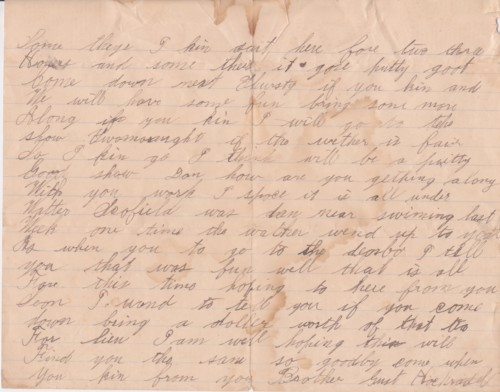 Some theye I kin sort here fore two thre
Houre and some there it gose putty goot
Come down next if you kin and
We will have some fun bring some man
Along if you kin I will go to the
show if the wether is fair
So I kin go I think will be a pritty
Good show Dan how are you gething along
With you work I spose it is all under
Watter Scofield was dan near swiming last
Week one time the watter wend up to your
As when you to go to the I tell
you that was fun well that is all
Fore this time hoping to here from you
Soon I wand to tell you if you come
down bring a doller worth of that
For I am well hoping this will
Find you the sam so goodby come when
You kin from you Brother Gust